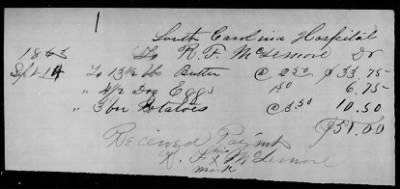 South Carolina Hospital
1863 To R. F. McLemore Dr
Sept 14 To 13½ lbs Butter @ 2.50 $33.75
" 4½ Doz Eggs 1.50 6.75
" 3 bu Potatoes @ 3.50 10.50
$51.00
Received Payment
his
R. F. X McLemore
mark